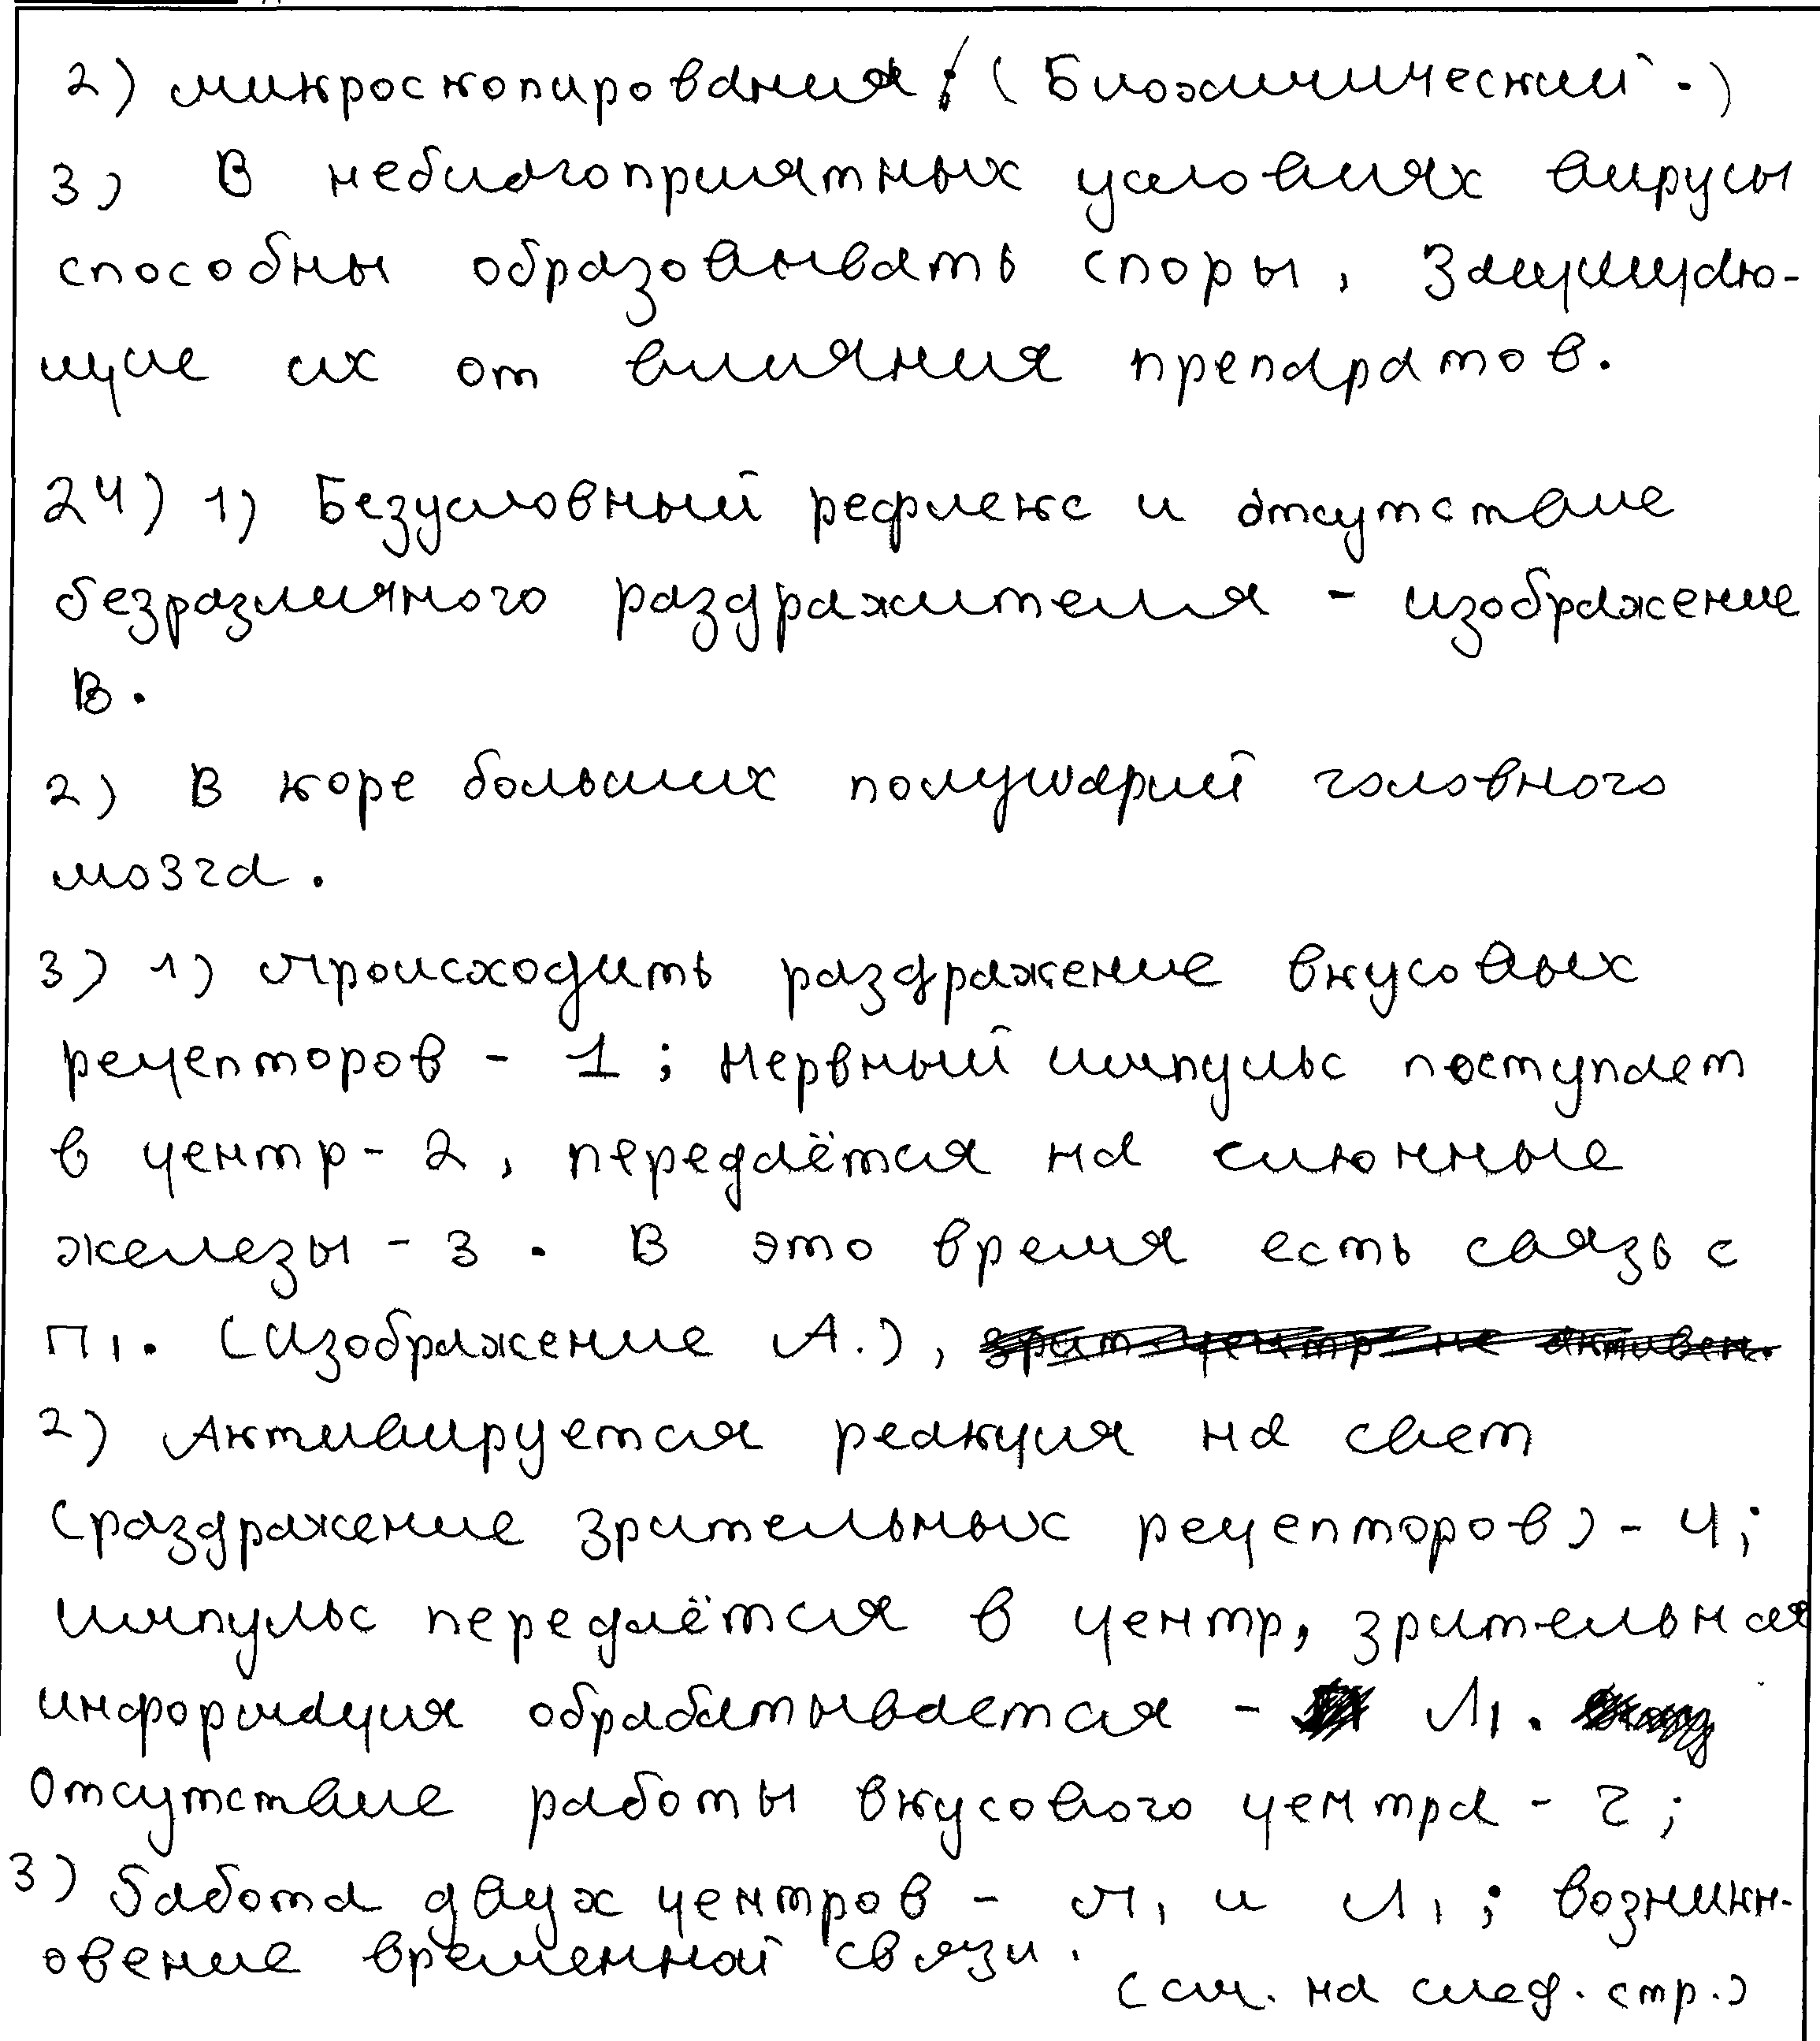 2) микроскопирования; (Биохимический.)
3) В неблагоприятных условиях вирусы
способны образовывать споры, защищаю-
щие их от влияния препаратов.
24) 1) Безусловный рефлекс и отсутствие
безразличного раздражителя - изображение
В.
2) В коре больших полушарий головного
мозга.
3) 1) Происходить раздражение вкусовых
рецепторов - 1; нервный импульс поступает
в центр - 2, передаётся на слюнные
железы - 3. В это время есть связь с
П1. (изображение А.), зрит. центр не активен.
2) Активируется реакция на свет
(раздражение зрительных рецепторов) - 4;
импульс передаётся в центр, зрительная
информация обрабатывается - Л1.
Отсутствие работы вкусового центра - 2;
3) Работа двух центров - П1 и Л1; возникн-
овение временной связи.
(см. на след. стр.)